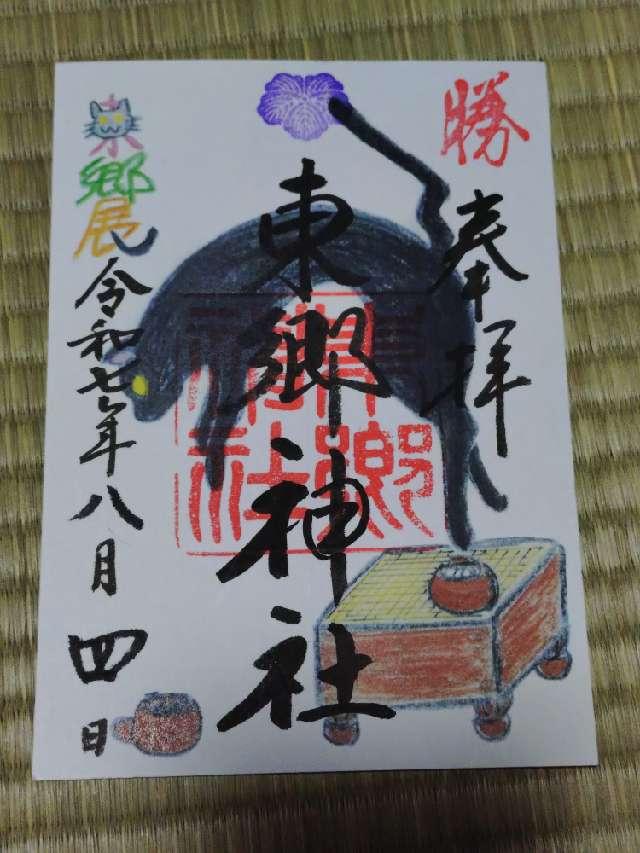 勝
奉拝
東郷神社
東郷神社
東郷展
令和七年八月四日